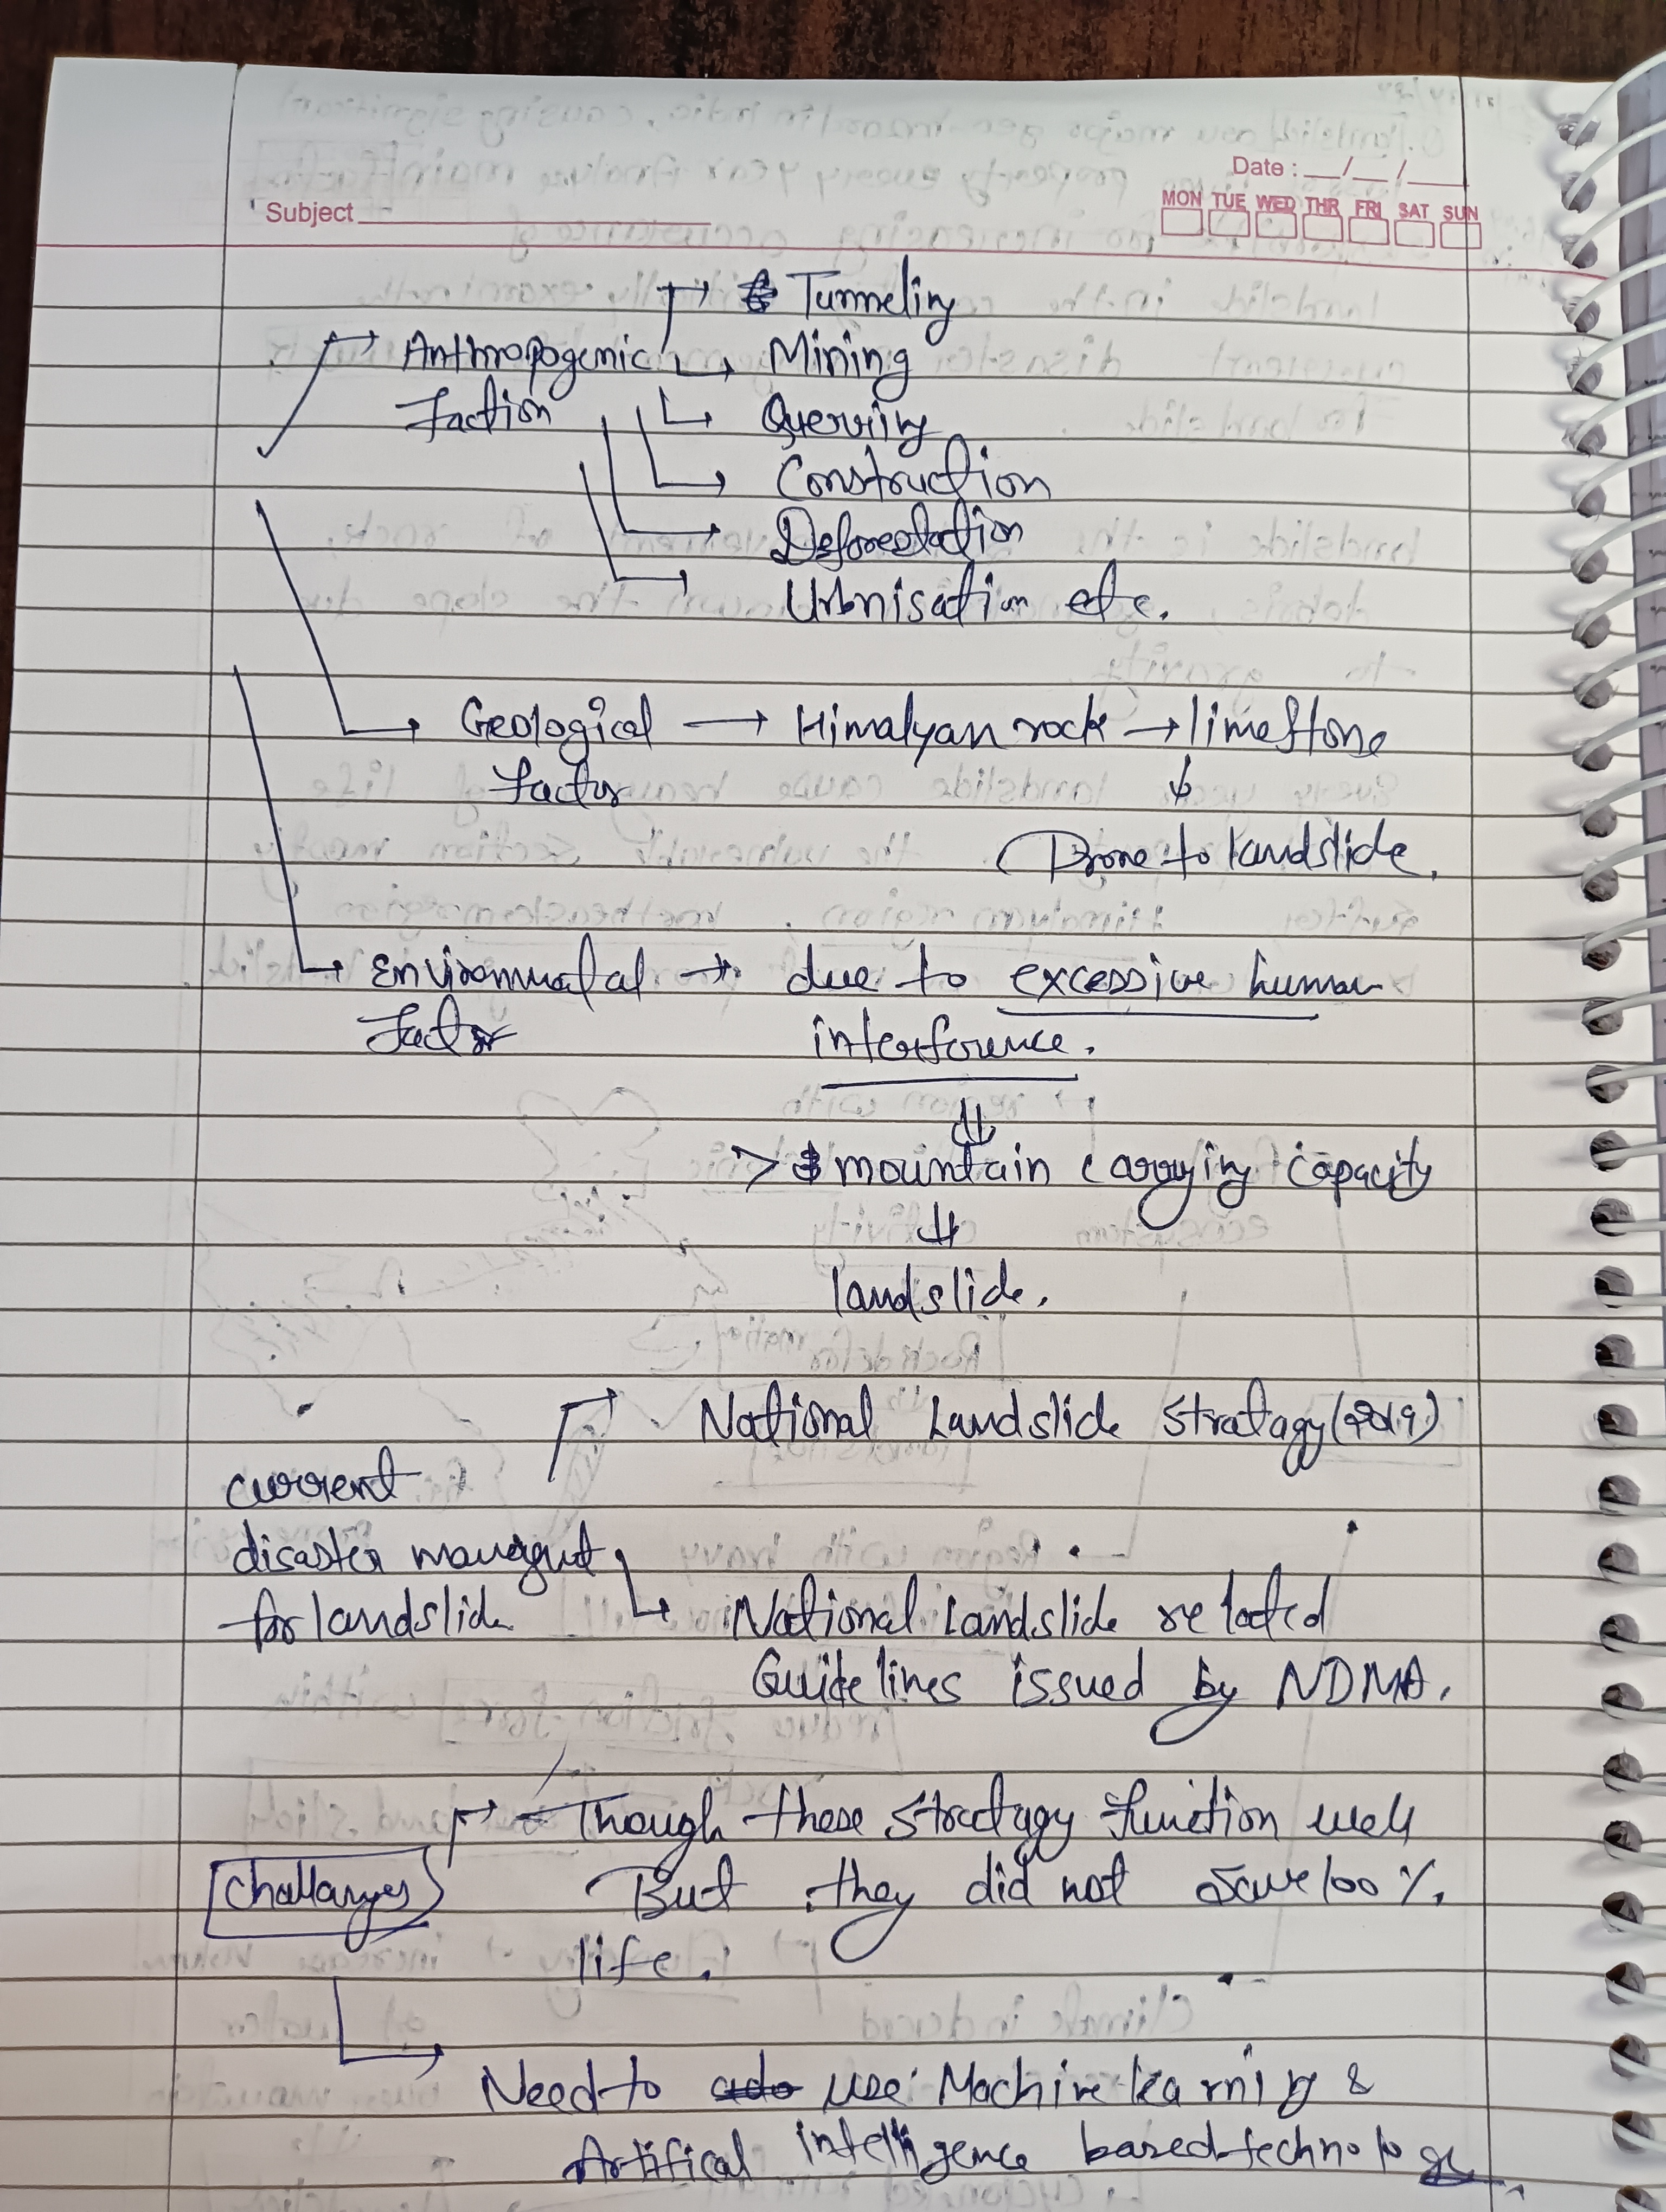 Date : __/__/____
MON TUE WED THR FRI SAT SUN
Subject
→ Tunneling
→ Anthropogenic → Mining
Faction → Querying
→ Construction
→ Deforestation
→ Urbnisation etc.
→ Geological → Himalyan rock → limestone
Factor ↓
Prone to landslide.
→ Environmental → due to excessive human
Factor interference.
⇓
> mountain carrying capacity
⇓
landslide.
→ National Landslide Stratagy (2019)
current
disaster managmt
for landslide → National Landslide related
Guidelines issued by NDMA.
→ Though these Stratagy function well
Challanges But they did not save 100 %
life.
→ Need to use Machine learning &
Artifical intelligence based technology